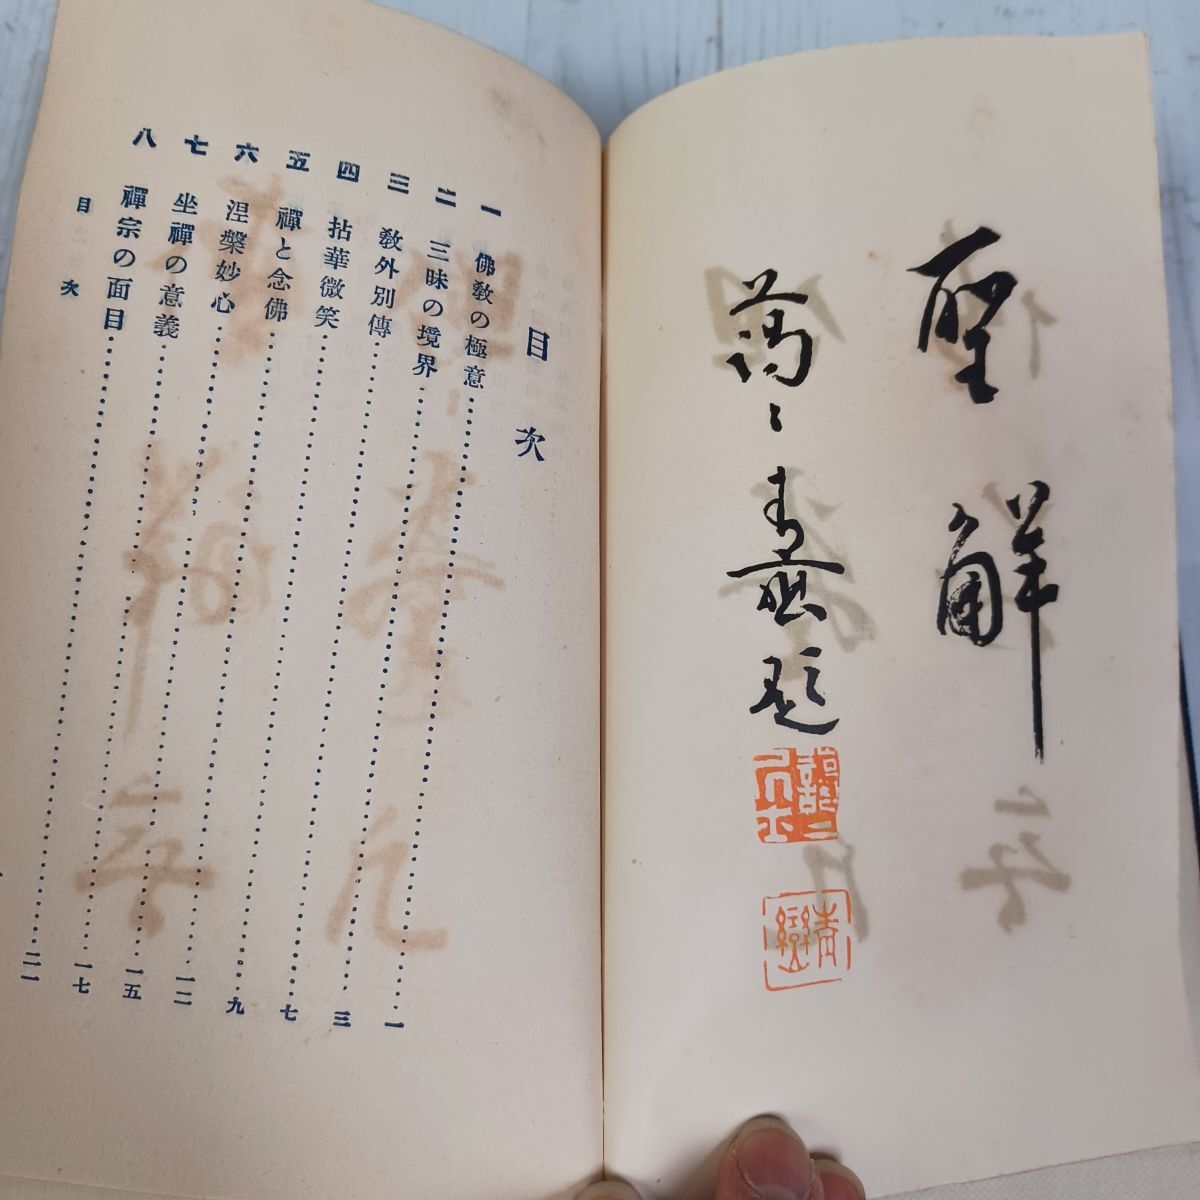 聖解
題
目次
一 佛教の極意 一
二 三昧の境界 三
三 教外別傳 七
四 拈華微笑 九
五 禪と念佛 一二
六 涅槃妙心 一五
七 坐禪の意義 一七
八 禪宗の面目 二一
目次